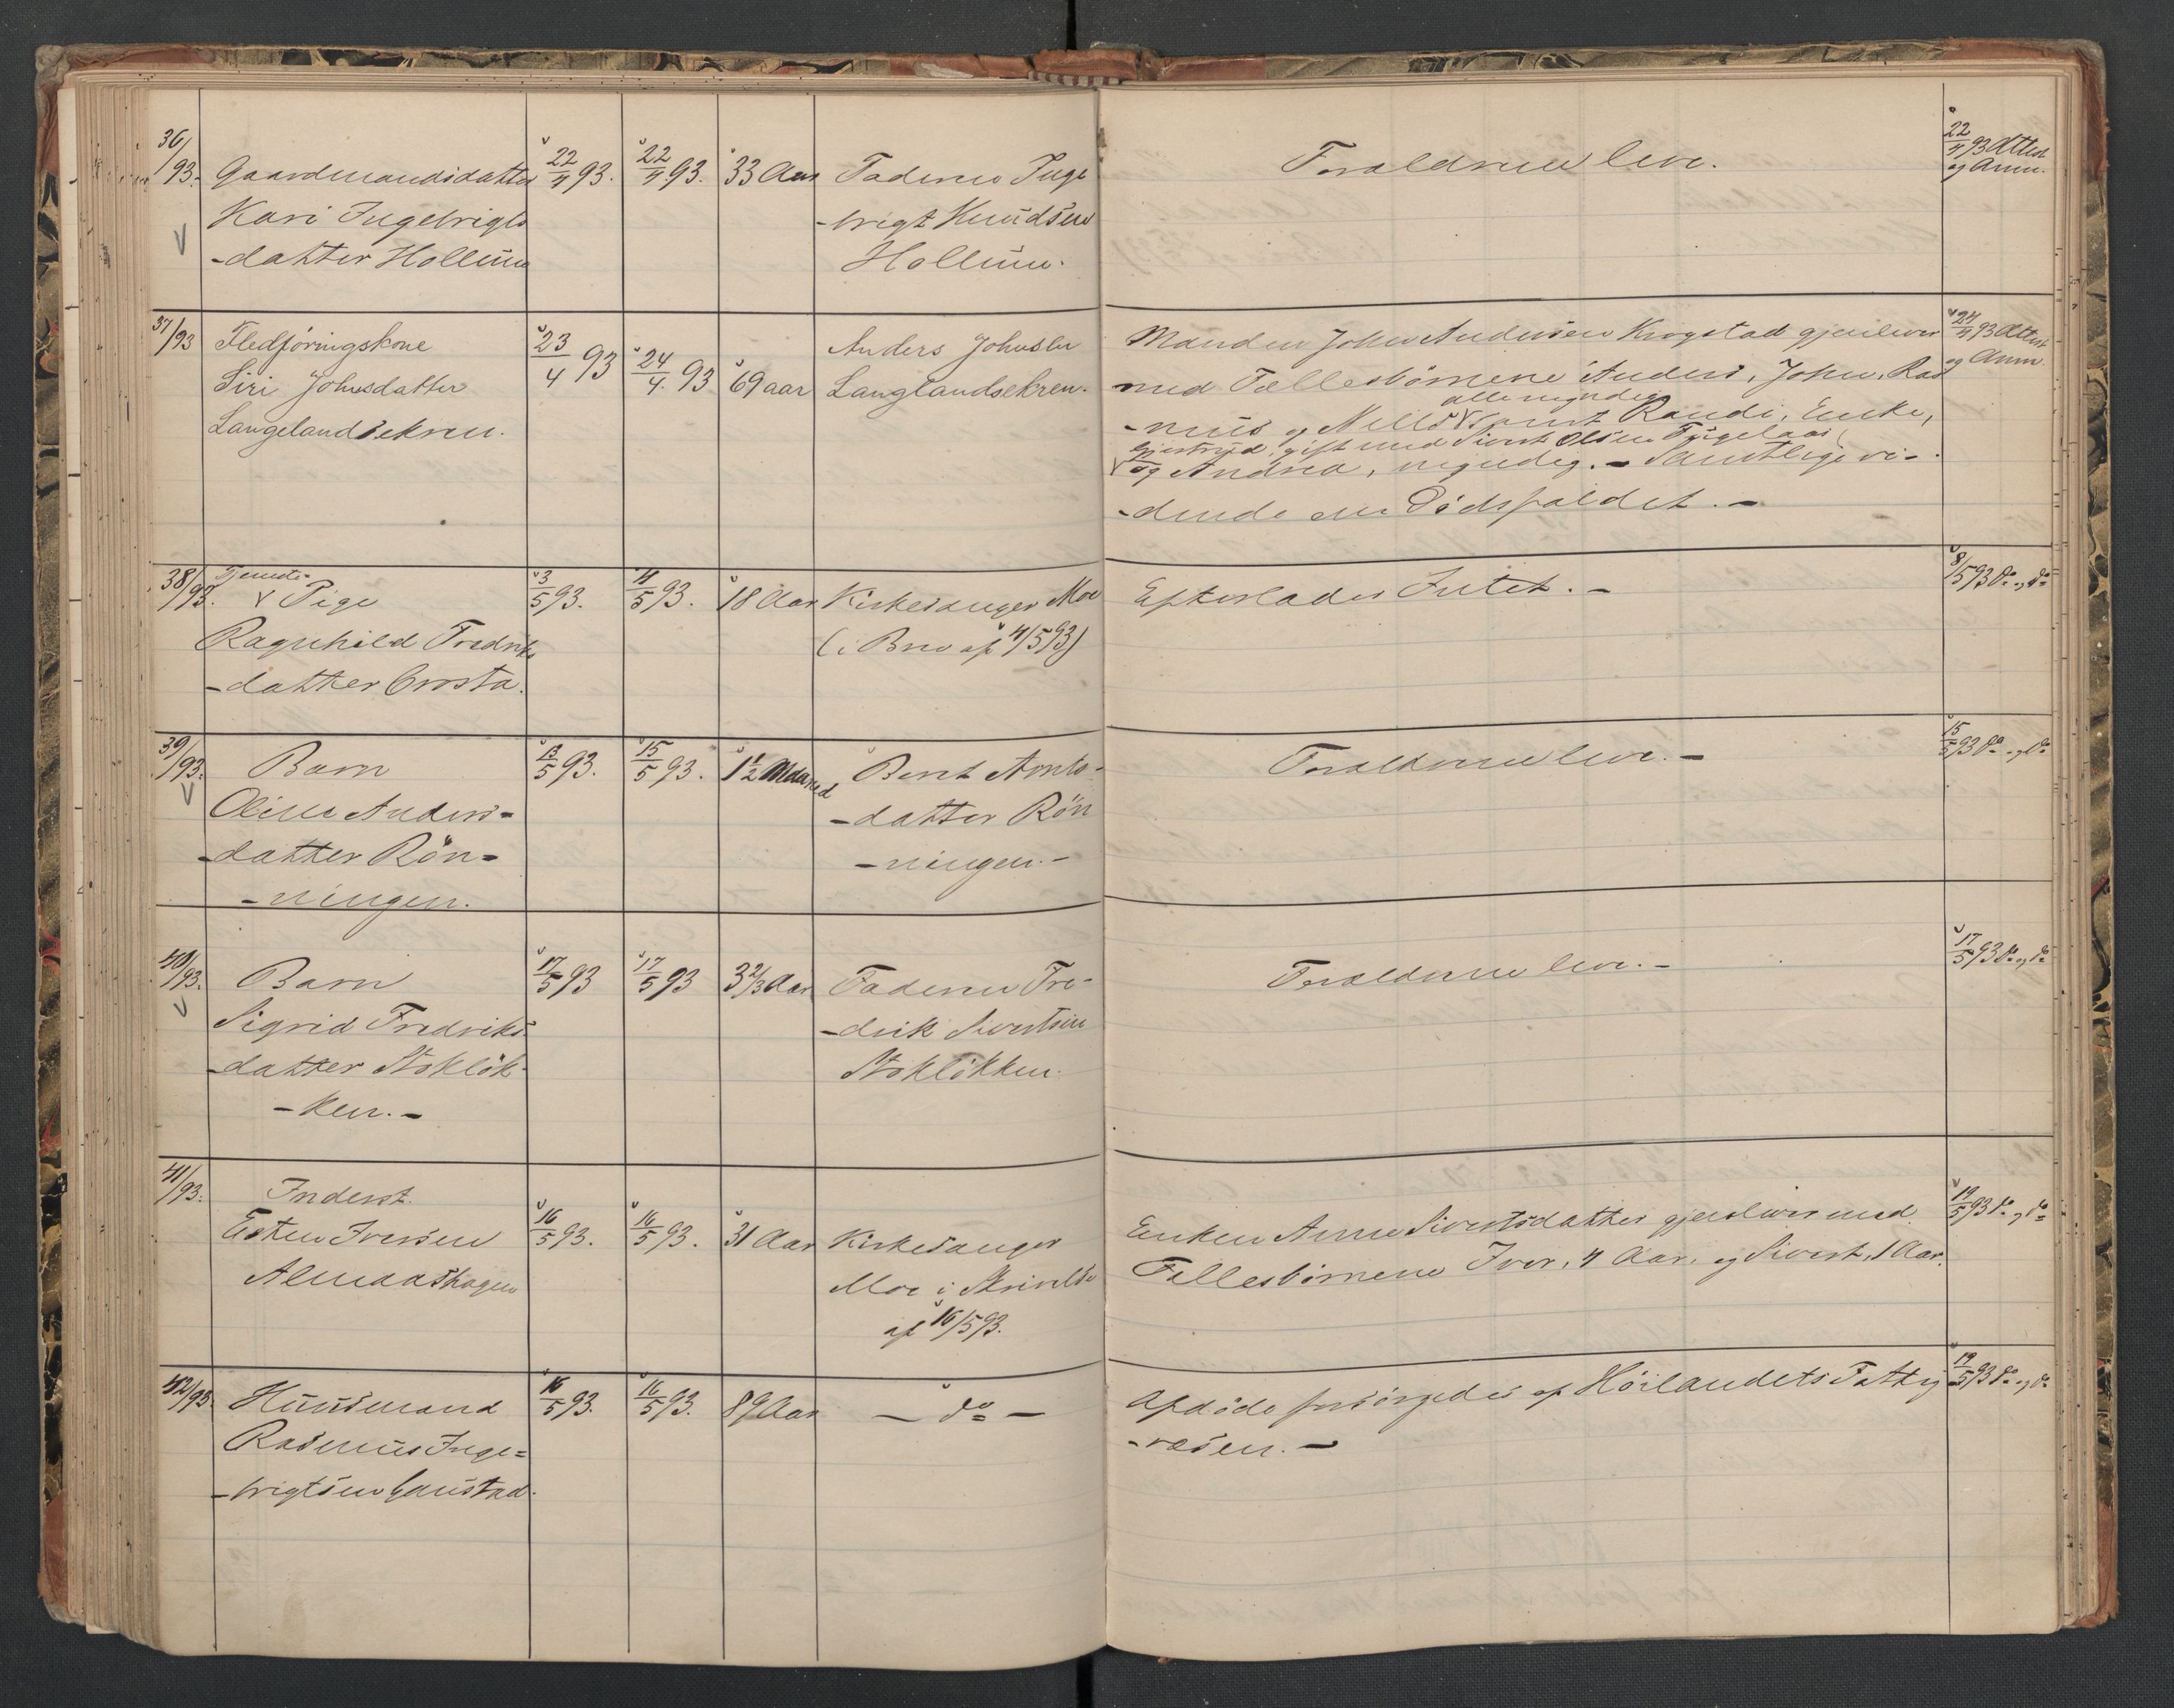 36/93.
Gaardmandsdatter
Kari Ingebrigts
-datter Hollum
22/4 93.
22/4 93.
33 Aar
Faderen Inge
-brigt Knudsen
Hollum.
Forældrene leve.
22/4 93 Attest
og Anm.
37/93
Fledføringskone
Siri Johnsdatter
Langelandsekren.
23/4 93
24/4 93
69 aar
Anders Johnsen
Langlandsekren.
Manden John Andersen Krogstad gjenlever
med Fællesbørnene Anders, John, Ras
allemyndige
-mus og Nills samt Randi, Enke,
gift med Sivert Olsen
og Andrea, myndig. - Samtlige vi-
-dende om Dødsfaldet. -
24/4 93 Attest
og Anm.
38/93.
Tjeneste-
Pige
Ragnhild Fredriks
-datter Crosta.
3/5 93.
4/5 93.
18 Aar
Kirkesanger Moe
(i Brev af 4/5 93)
Efterlader Intet. -
8/5 93 do og do
39/93.
Barn
Oline Anders-
-datter Rön-
-ningen.
13/5 93.
15/5 93.
1 1/2 Maaned
Berit Arnts-
-datter Rön
-ningen. -
Forældrene leve. -
15/5 93 do og do
40/93.
Barn
Sigrid Fredriks-
-datter Stoklök-
-ken. -
17/5 93
17/5 93
3 2/3 Aar
Faderen Fre-
-drik Sivertsen
Stoklökken.
Forældrene leve. -
17/5 93 do og do
41/93.
Inderst.
Esten Iversen
Almaashagen
16/5 93.
16/5 93.
31 Aar
Kirkesanger
Moe i Skrivelse
af 16/5 93.
Enken Anne Sivertsdatter gjenlever med
Fællesbørnene Iver, 4 Aar, og Sivert, 1 Aar.
19/5 93 do og do
42/93.
Huusmand
Rasmus Inge-
-brigtsen Gaustad.
16/5 93.
16/5 93.
89 Aar
- do -
Afdøde forsørgedes af Hörlandets Fattig
-væsen. -
19/5 93 do og do